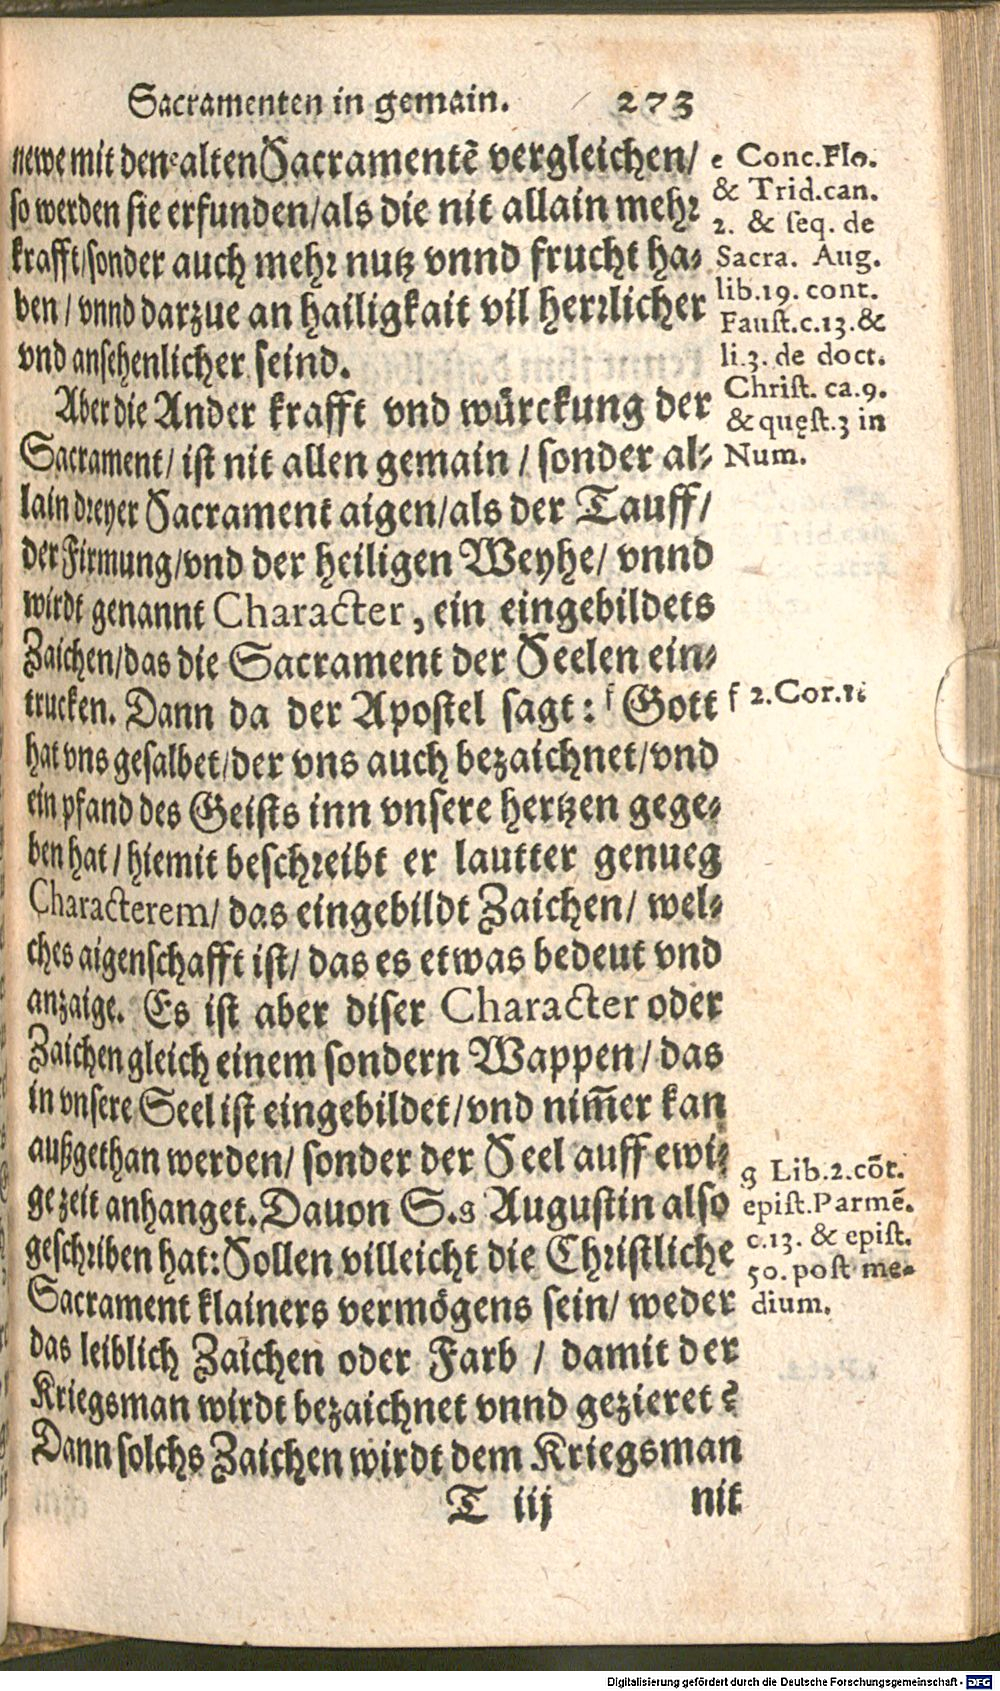 Sacramenten in gemain. 273
newe mit den e alten Sacramentē vergleichen/
so werden sie erfunden/als die nit allain mehr
krafft/sonder auch mehr nutz vnnd frucht ha-
ben / vnnd darzue an hailigkait vil herrlicher
vnd ansehenlicher seind.
Aber die Ander krafft vnd würckung der
Sacrament/ ist nit allen gemain / sonder al-
lain dreyer Sacrament aigen/als der Tauff/
der Firmung/vnd der heiligen Weyhe/ vnnd
wirdt genannt Character, ein eingebildets
Zaichen/das die Sacrament der Seelen ein-
trucken. Dann da der Apostel sagt: f Gott
hat vns gesalbet/der vns auch bezaichnet/vnd
ein pfand des Geists inn vnsere hertzen gege-
ben hat / hiemit beschreibt er lautter genueg
Characterem/ das eingebildt Zaichen/ wel-
ches aigenschafft ist/ das es etwas bedeut vnd
anzaige. Es ist aber diser Character oder
Zaichen gleich einem sondern Wappen/ das
in vnsere Seel ist eingebildet/vnd nim̄er kan
außgethan werden/ sonder der Seel auff ewi-
ge zeit anhanget. Dauon S. g Augustin also
geschriben hat: Sollen villeicht die Christliche
Sacrament klainers vermögens sein/ weder
das leiblich Zaichen oder Farb / damit der
Kriegsman wirdt bezaichnet vnnd gezieret?
Dann solchs Zaichen wirdt dem Kriegsman
T iij nit
e Conc.Flo.
& Trid.can.
2. & seq. de
Sacra. Aug.
lib.19. cont.
Faust.c.13.&
li.3. de doct.
Christ. ca.9.
& quęst.3 in
Num.
f 2.Cor.1.
g Lib.2.cōt.
epist.Parmē.
c.13. & epist.
50. post me-
dium.
Digitalisierung gefördert durch die Deutsche Forschungsgemeinschaft - DFG